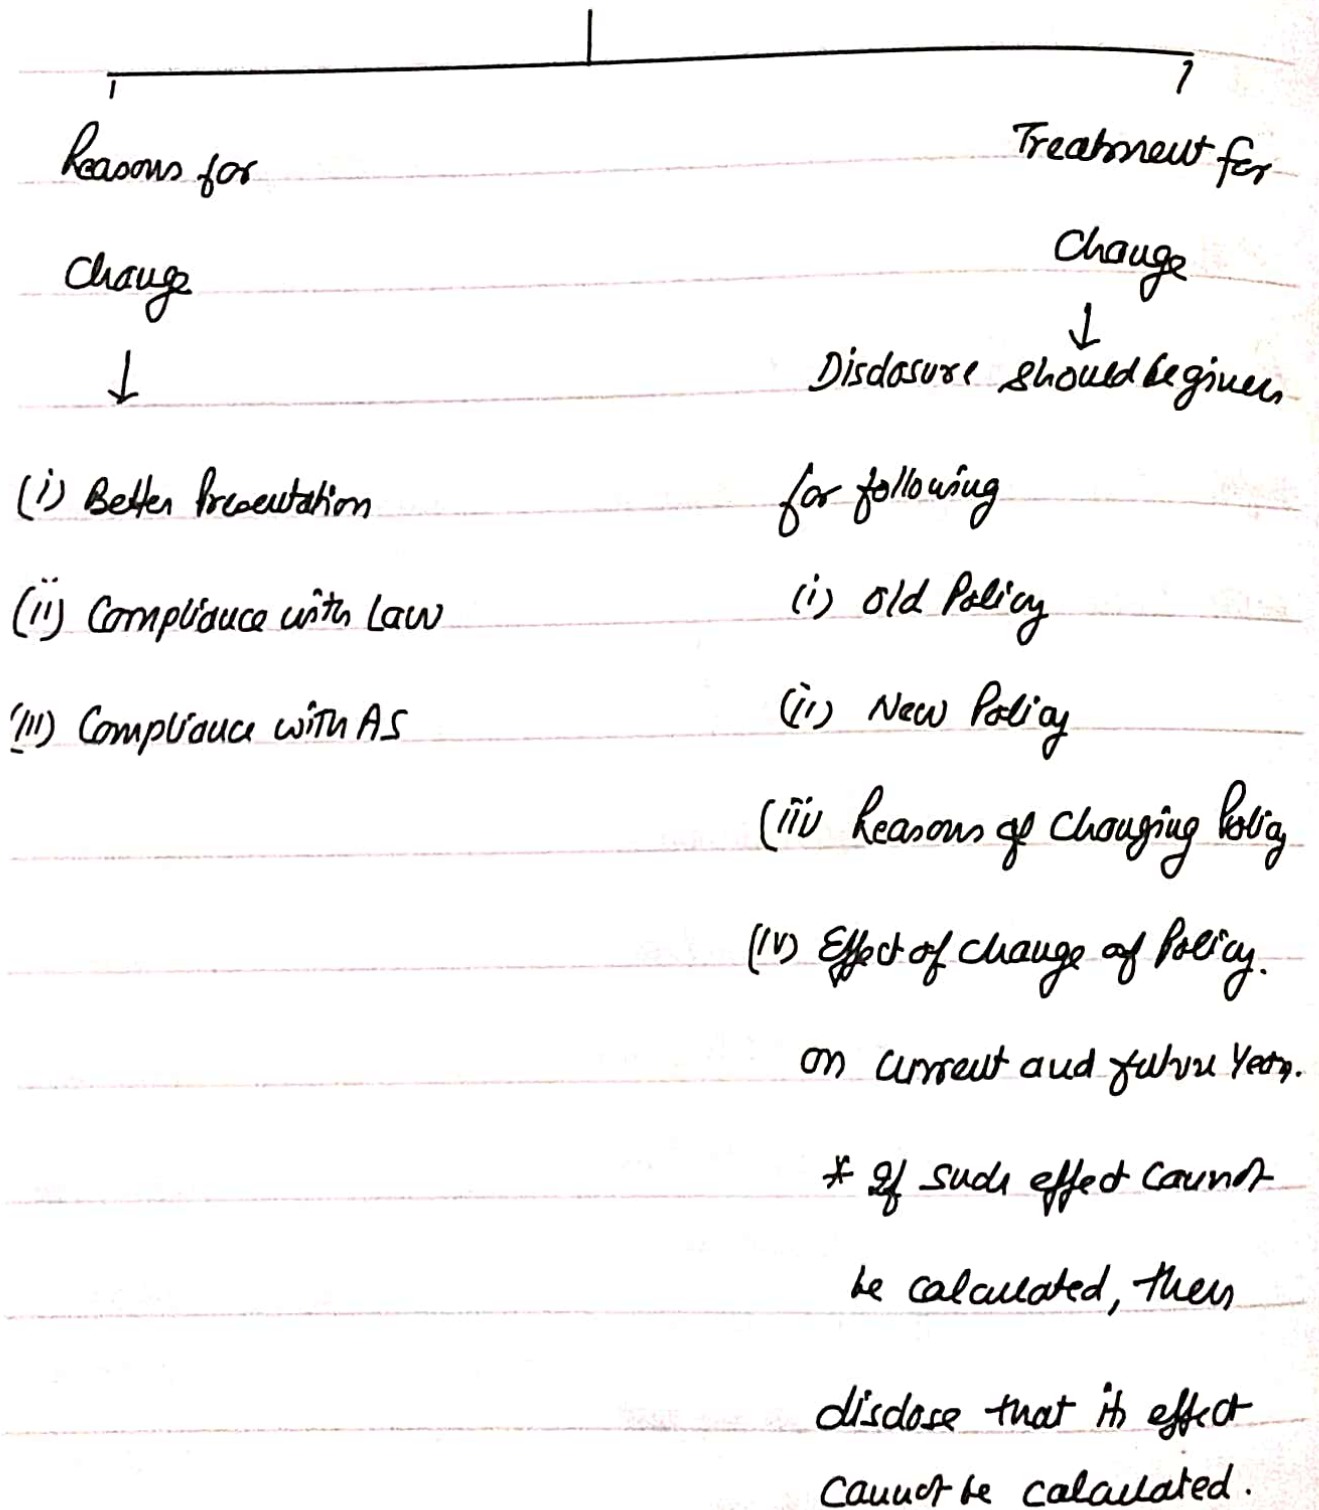 Reasons for
Change
↓
(i) Better Presentation
(ii) Compliance with Law
(iii) Compliance with AS
Treatment for
Change
↓
Disclosure should be given
for following
(i) Old Policy
(ii) New Policy
(iii) Reasons of Changing Policy
(iv) Effect of change of Policy.
on current and future Years.
* If such effect cannot
be calculated, then
disclose that its effect
cannot be calculated.